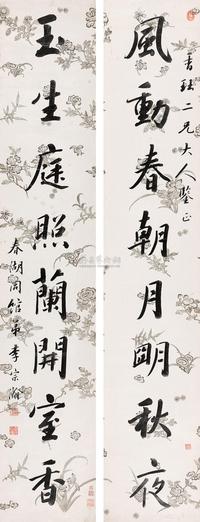 風動春朝月明秋夜
二兄大人鑒正
玉生庭照蘭開室香
春湖閣館弟李宗瀚